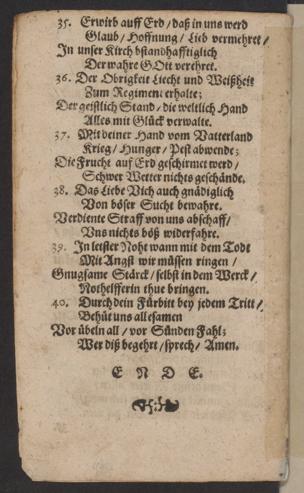 35. Erwirb auff Erd / daß in uns werd
Glaub / Hoffnung / Lieb vermehret /
In unser Kirch bstandhafftiglich
Der wahre GOtt verehret.
36. Der Obrigkeit Liecht und Weißheit
Zum Regiment erhalte;
Der geistlich Stand / die weltlich Hand
Alles mit Glück verwalte.
37. Mit deiner Hand vom Vatterland
Krieg / Hunger / Pest abwende;
Die Frucht auf Erd geschirmet werd /
Schwer Wetter nichts geschände.
38. Das Liebe Vich auch gnädiglich
Von böser Sucht bewahre.
Verdiente Straff von uns abschaff /
Uns nichts böß widerfahre.
39. In letster Noht wann mit dem Todt
Mit Angst wir müssen ringen /
Gnugsame Stärck / selbst in dem Werck /
Nothelfferin thue bringen.
40. Durch dein Fürbitt bey jedem Tritt /
Behüt uns allesamen
Vor übeln all / vor Sünden Fahl;
Wer diß begehrt / sprech / Amen.
E N D E.